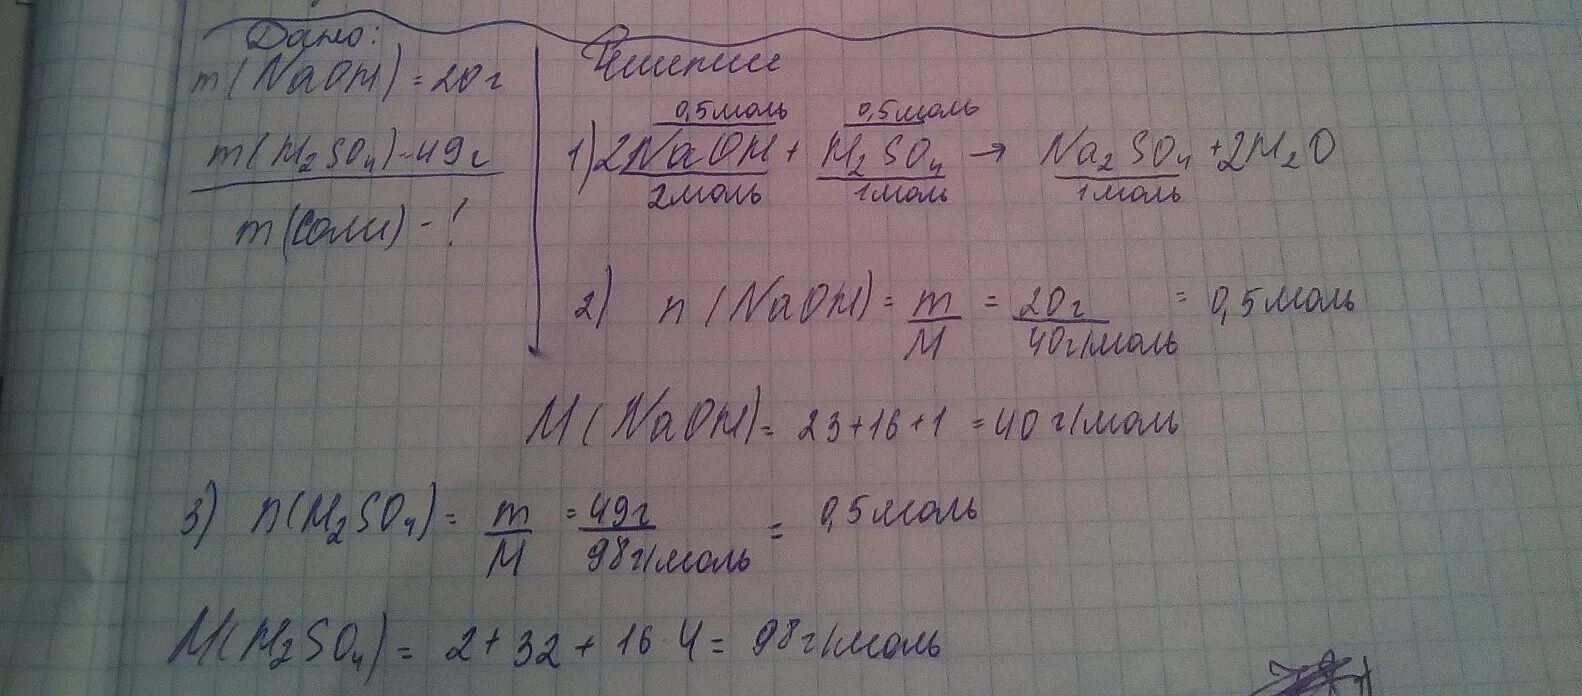 Дано:
m(NaOH)=20г
m(H₂SO₄)-49г
m(соли)-?
Решение
0,5моль 0,5моль
1) 2NaOH + H₂SO₄ → Na₂SO₄ + 2H₂O
2моль 1моль 1моль
2) n(NaOH) = m/M = 20г/40г/моль = 0,5моль
M(NaOH)= 23+16+1 =40г/моль
3) n(H₂SO₄)= m/M =49г/98г/моль = 0,5моль
M(H₂SO₄)= 2+32+16·4= 98г/моль